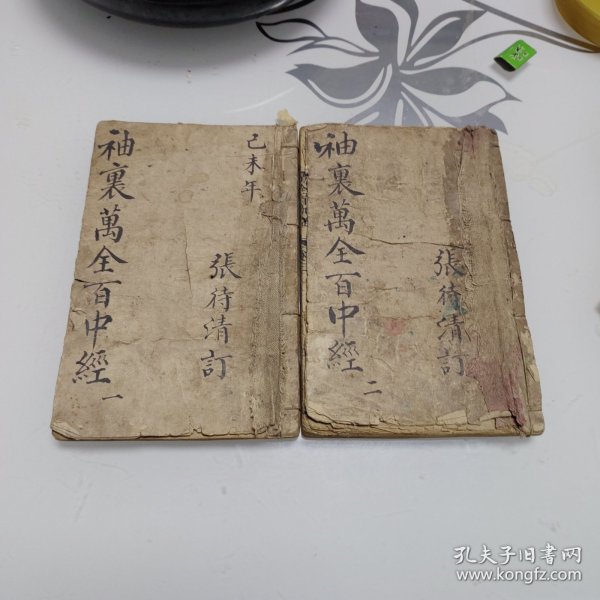 己未年
張待清訂
袖裏萬全百中經 一
張待清訂
袖裏萬全百中經 二
孔夫子旧书网
www.kongfz.com